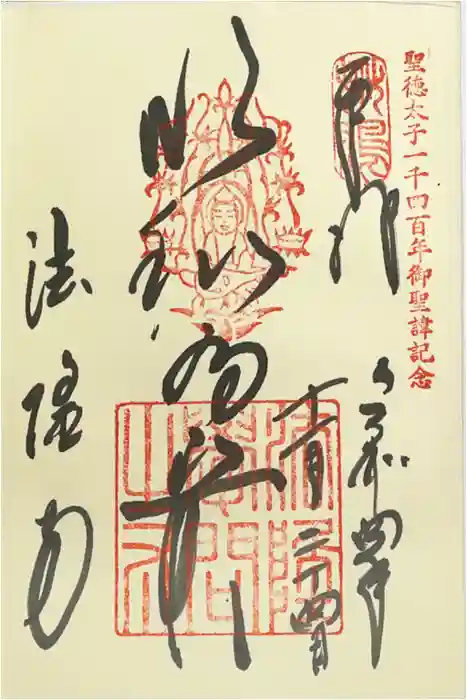 聖徳太子一千四百年御聖諱記念
奉拝
令和四年
二十四日
以和為貴
法隆寺